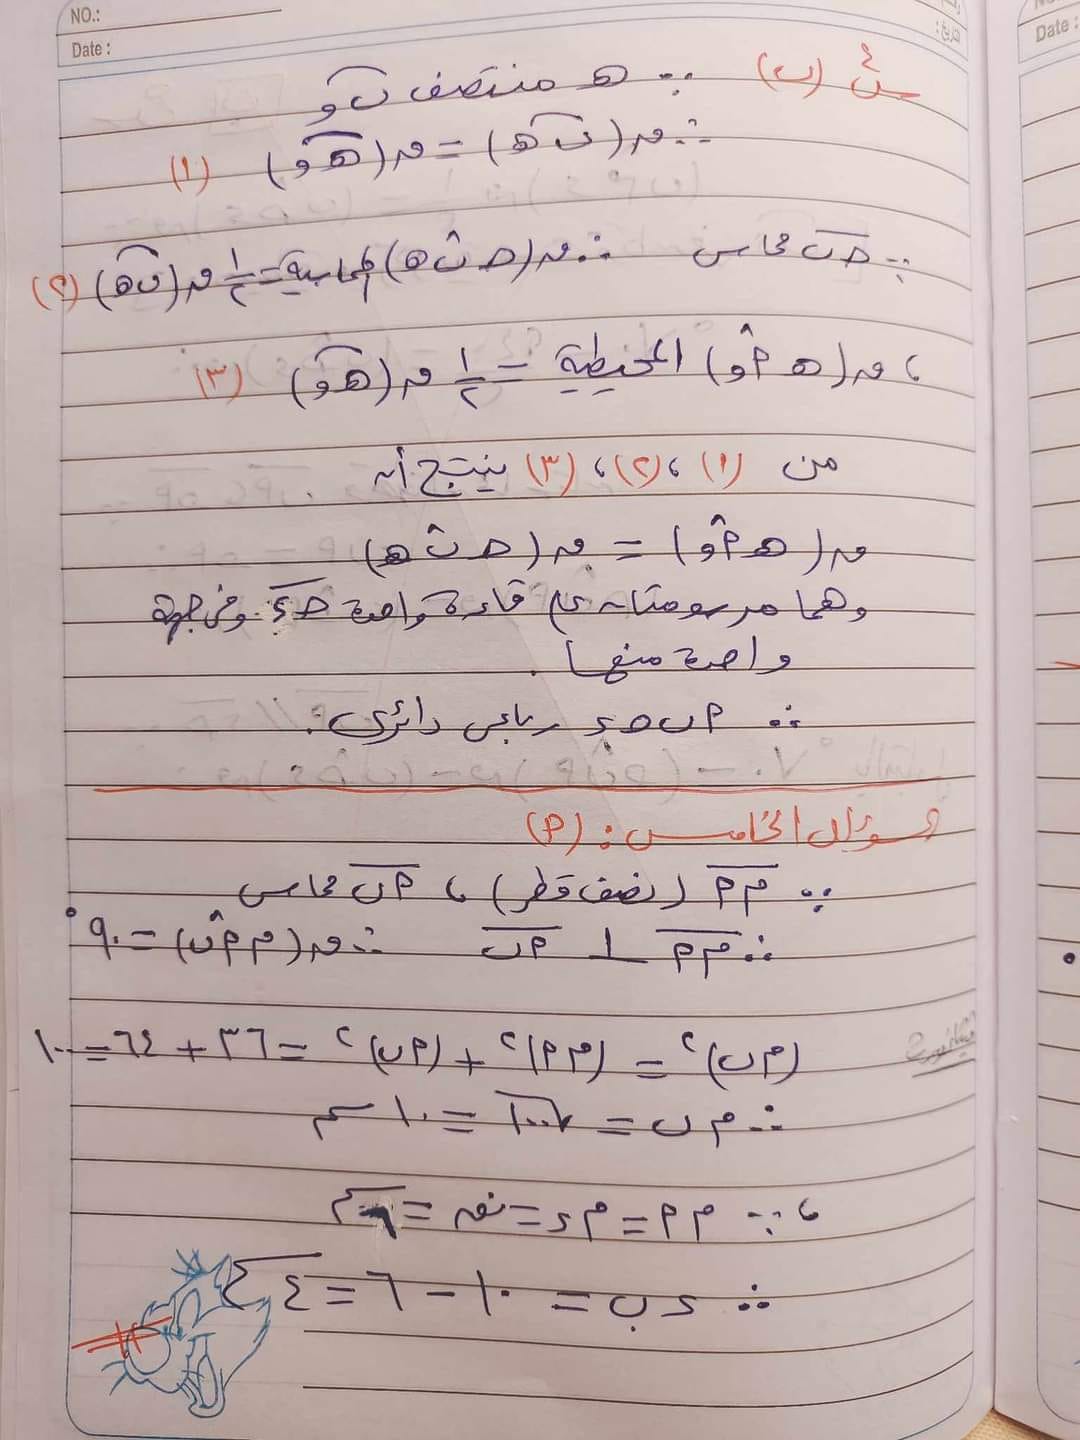 NO.:
Date :
س٤ (ب) ∵ هـ منتصف ب و
∴ ق(ب هـ) = ق(هـ و) (١)
∵ جـ ب مماس ∴ ق(جـ ب هـ) المماسية = ١/٢ ق(ب هـ) (٢)
، ق(هـ أ و) المحيطية = ١/٢ ق(هـ و) (٣)
من (١)، (٢)، (٣) ينتج أن
ق(هـ أ و) = ق(جـ ب هـ)
وهما مرسومتان على قاعدة واحدة جـ ء وفى جهة
واحدة منها.
∴ أ ب جـ ء رباعى دائرى.
السؤال الخامس: (أ)
∵ م أ (نصف قطر) ، أ ب مماس
∴ م أ ⊥ أ ب ∴ ق(م أ ب) = ٩٠°
(م ب)² = (م أ)² + (أ ب)² = ٣٦ + ٦٤ = ١٠٠
∴ م ب = √١٠٠ = ١٠ سم
، ∵ م أ = م ء = نق = ٦ سم
∴ ء ب = ١٠ − ٦ = ٤ سم
Date :